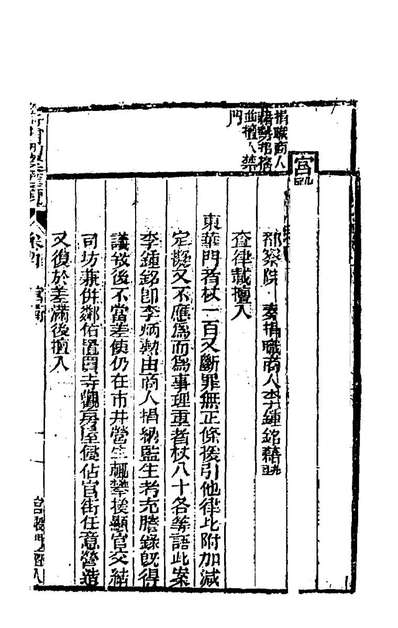 捐職商人
藉勢招搖
並擅入禁
門
宮
都察院 奏捐職商人李鍾銘藉
查律載擅入
東華門者杖一百又斷罪無正條援引他律比附加減
定擬又不應爲而爲事理重者杖八十各等語此案
李鍾銘卽李炳勳由商人捐納監生考充謄錄旣得
議敘後不當差使仍在市井營生輒攀援顯官交結
司坊兼併鄰佑置買寺觀房屋侵佔官街任意營造
又復於差滿後擅入